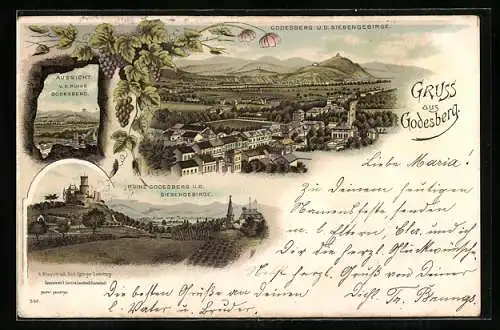 GODESBERG U.D. SIEBENGEBIRGE.
AUSSICHT
V.D. RUINE
GODESBERG.
GRUSS
aus
Godesberg.
RUINE GODESBERG U.D.
SIEBENGEBIRGE.
Liebe Maria!
Zu Deinem heutigen
Namensfeste, senden
m. b. Eltern, u. ich
Dir die herzl. Glückwünsche.
Noch herzl. Gruß von Deiner
Die besten Grüße an Deinen
l. Vater u. Bruder.